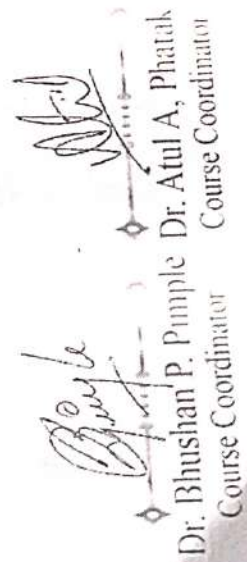 Dr. Bhushan P. Pimple
Course Coordinator
Dr. Atul A, Phatak
Course Coordinator